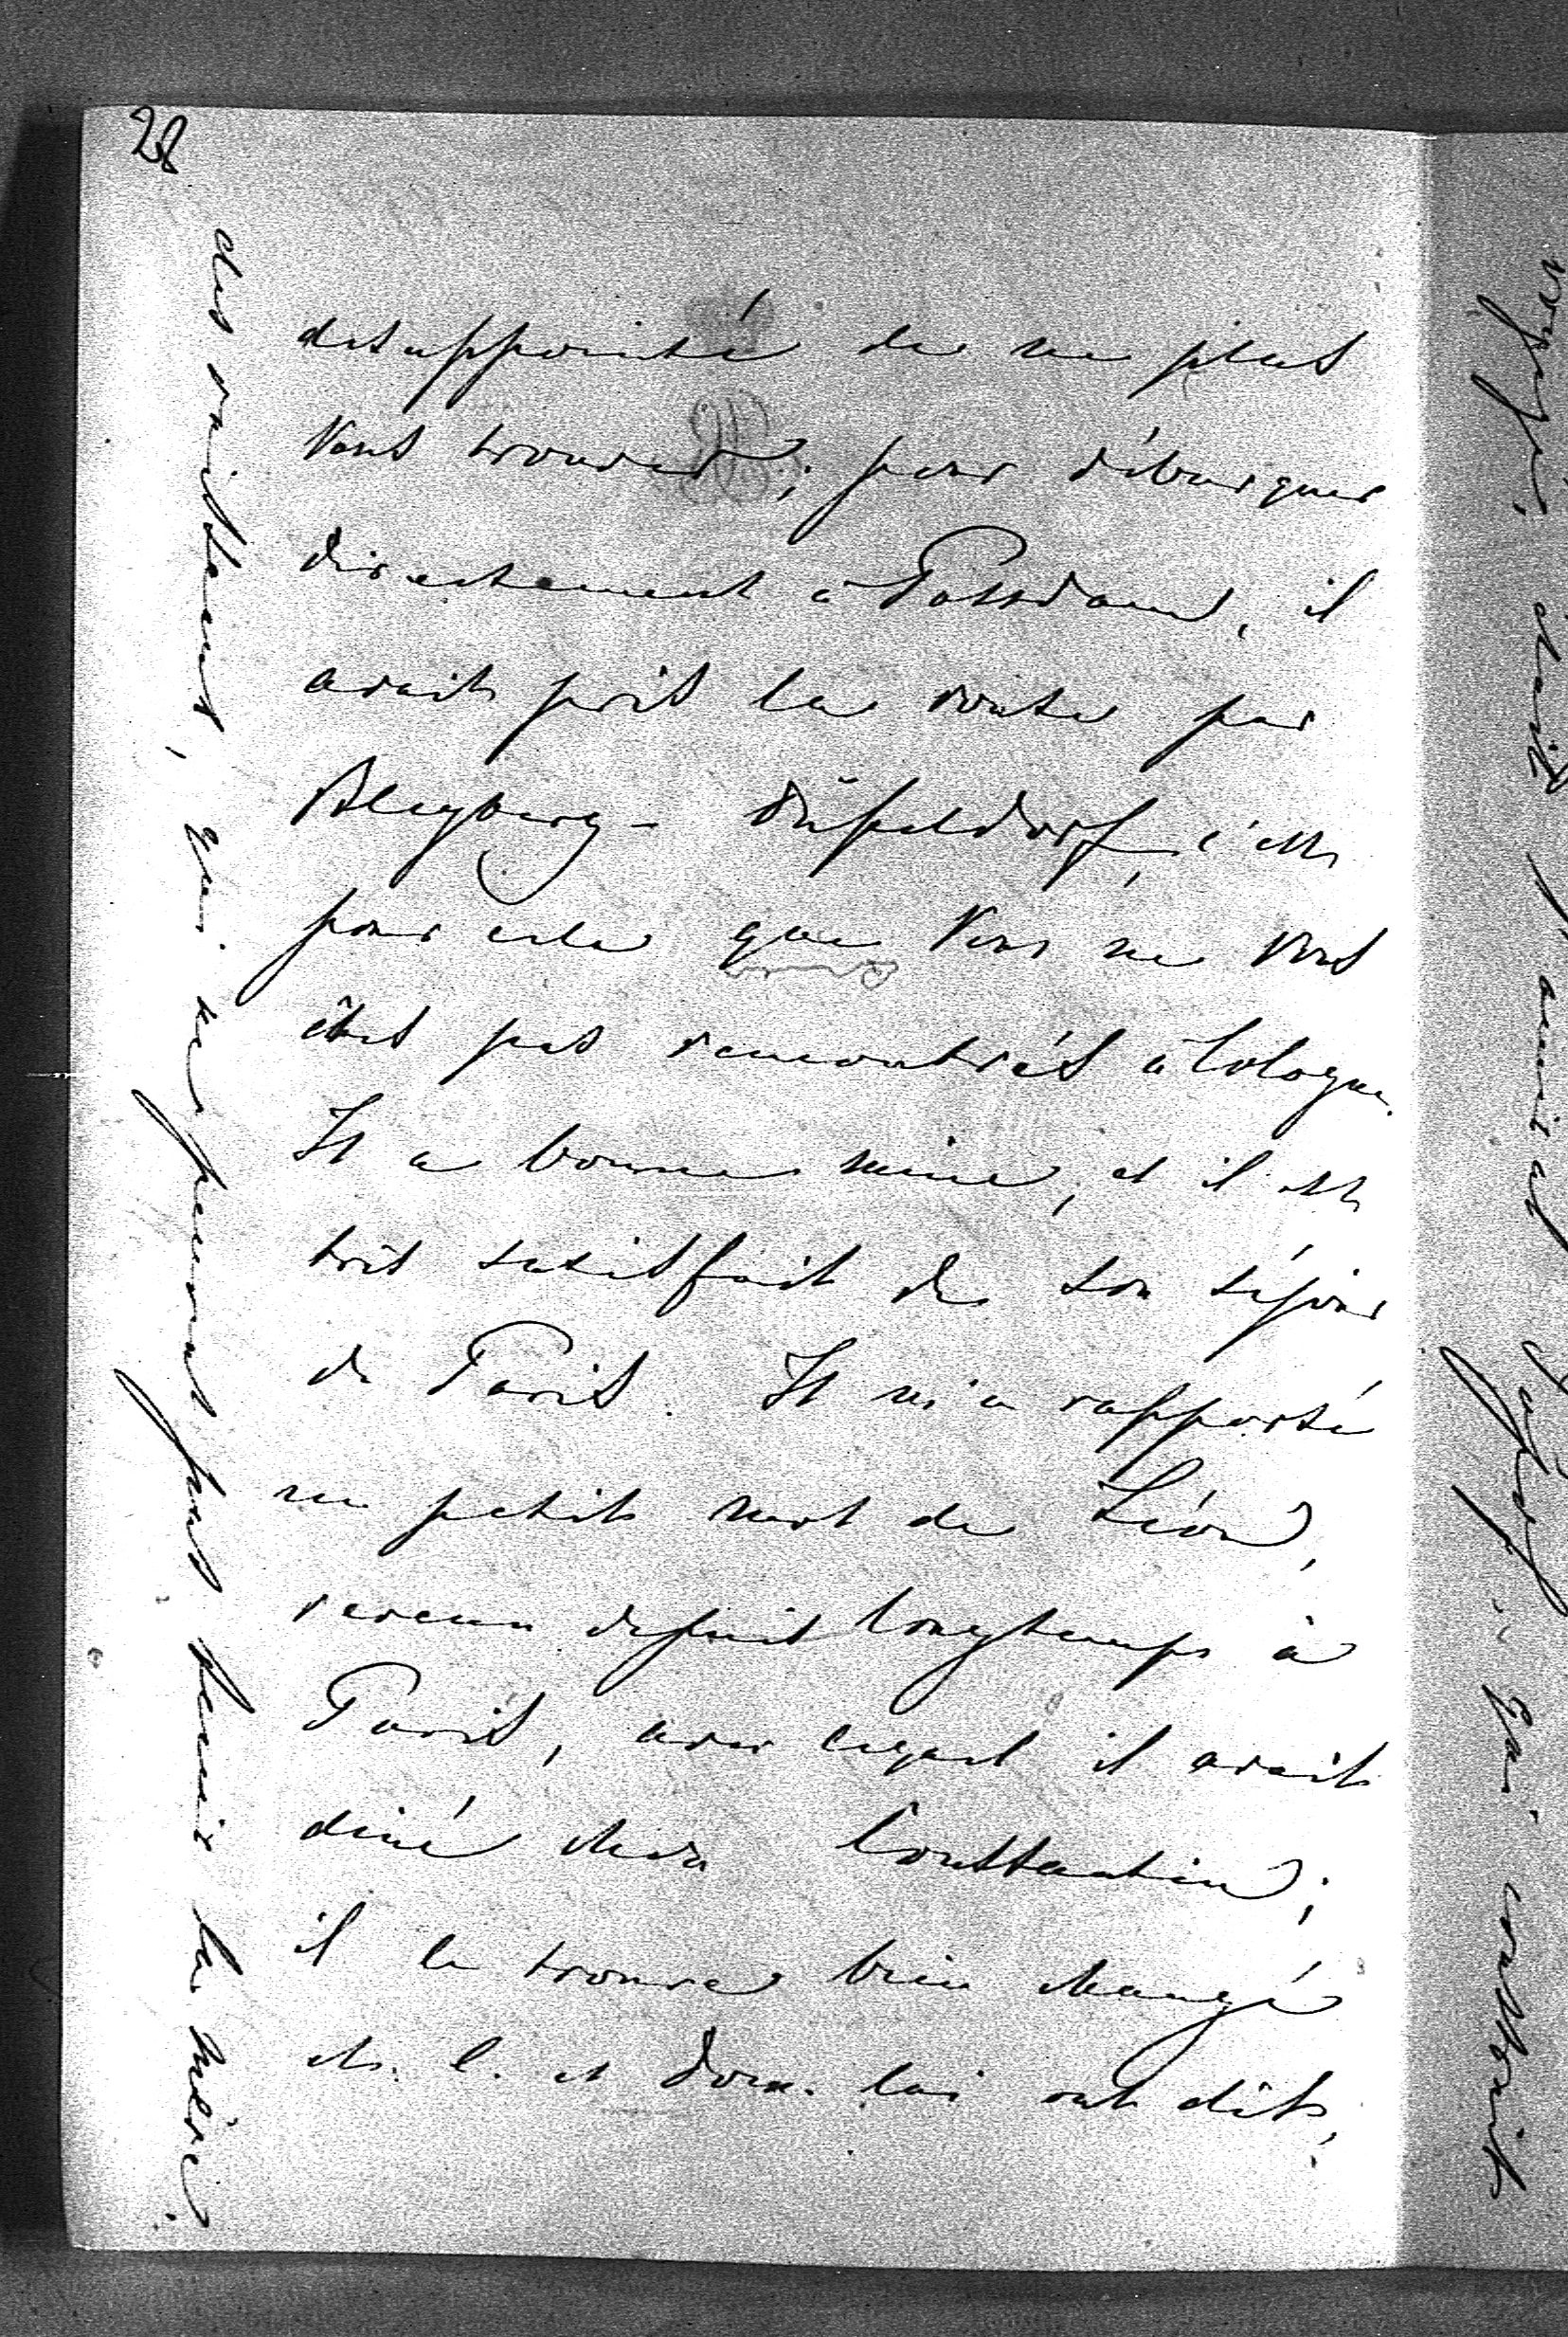 28
desappointé de ne plus
Vous trouver; pour débarquer
directement à Potsdam, il
avait pris la route par
Bleyberg-Düsseldorf, c'est
pour cela que Vous ne Vous
êtes pas rencontrés à Cologne.
Il a bonne mine, et il est
très satisfait de son séjour
de Paris. Il m'a rapporté
un petit mot de Léon,
revenu depuis longtemps à
Paris, avec lequel il avait
diné chez Constantin;
il le trouve bien changé
et. C. et Dom. lui ont dit,
des survivants, qui ne peuvent pas tenir la mère.